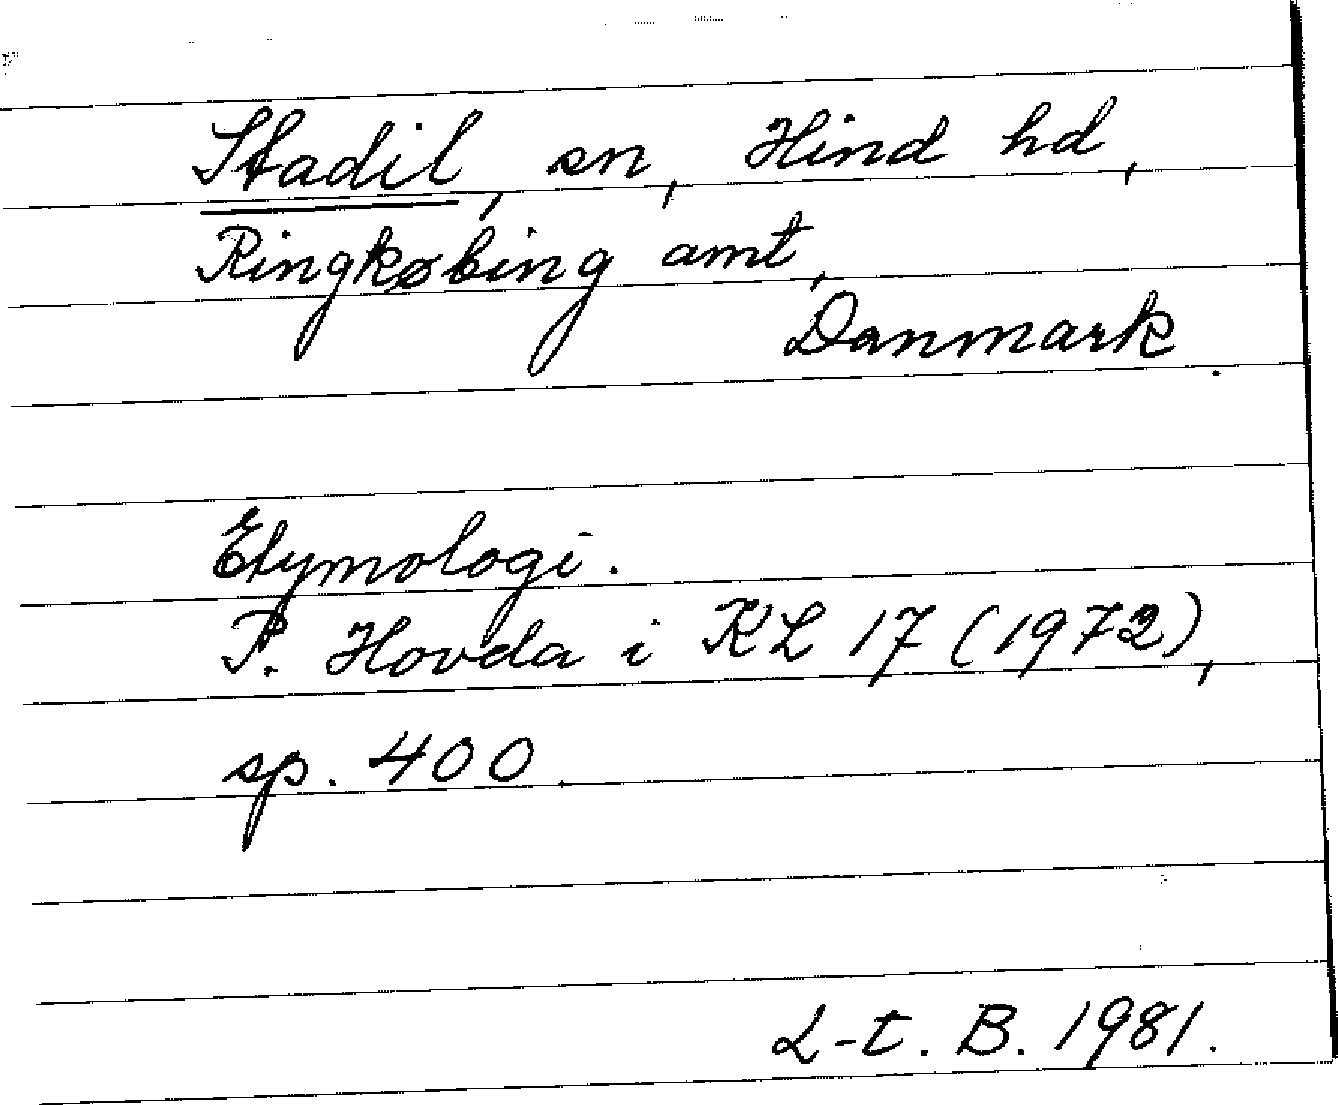 Stadil, sn, Hind hd,
Ringkøbing amt,
Danmark.
Etymologi.
P. Hovda i KL 17 (1972),
sp. 400.
L-t. B. 1981.